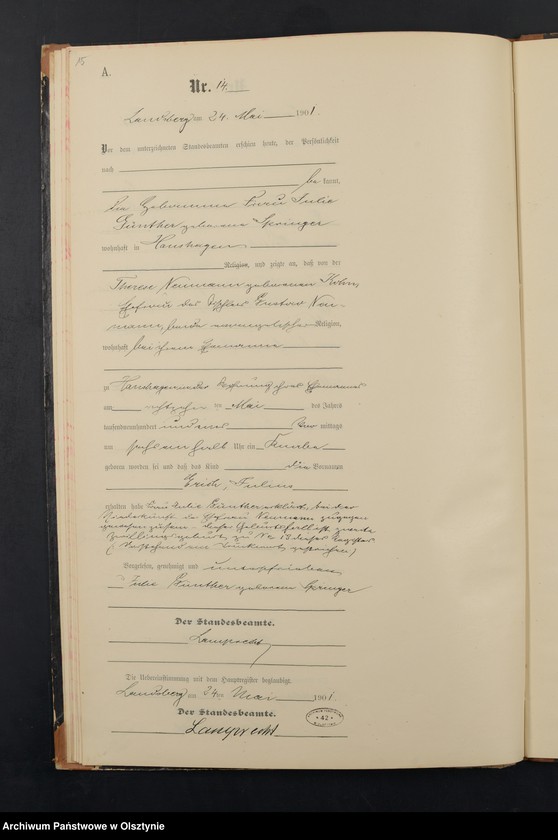 15
A.
Nr. 14.
Landsberg am 24. Mai 1901.
Vor dem unterzeichneten Standesbeamten erschien heute, der Persönlichkeit
nach
be kannt,
die Hebamme Frau Julie
Günther geborene Springer
wohnhaft in Hanshagen
Religion, und zeigte an, daß von der
Therese Neumann geborenen Kohn,
Ehefrau des Gustav Neu-
mann, beide evangelischer Religion,
wohnhaft bei ihrem Ehemanne
zu Hanshagen in der Wohnung ihres Ehemannes
am achtzehn ten Mai des Jahres
tausendneunhundert und eins Vor mittags
um halb Uhr ein Knabe
geboren worden sei und daß das Kind die Vornamen
Erich, Julius
erhalten habe. Frau Julie Günther erklärte, bei der
Niederkunft der Neumann zugegen
gewesen zu sein. Dieser Geburtsfall ist zweite
Zwillingsgeburt zu Nr. 13 dieses Register
(Vorstehend ein Druckwort gestrichen)
Vorgelesen, genehmigt und unterschrieben
Julie Günther geborene Springer
Der Standesbeamte.
Lamprecht
Die Uebereinstimmung mit dem Hauptregister beglaubigt.
Landsberg am 24ten Mai 1901.
Der Standesbeamte.
Lamprecht
* 42 *
Archiwum Państwowe w Olsztynie